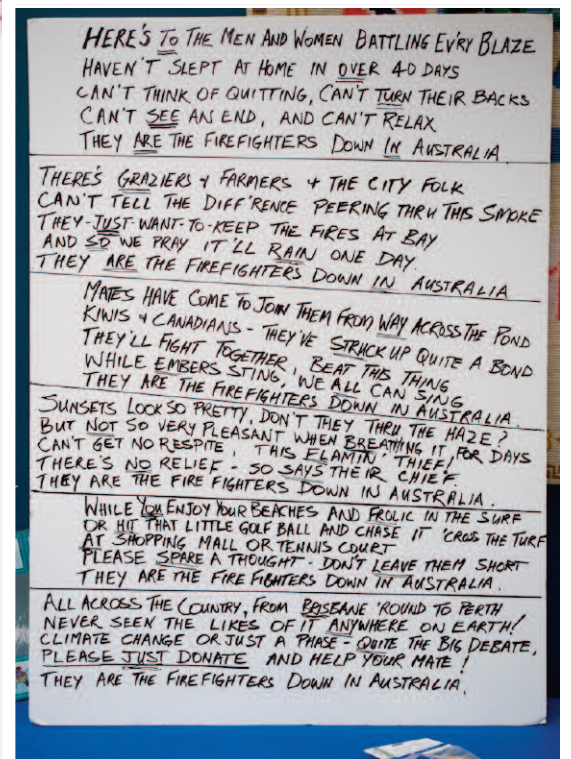 HERE'S TO THE MEN AND WOMEN BATTLING EV'RY BLAZE
HAVEN'T SLEPT AT HOME IN OVER 40 DAYS
CAN'T THINK OF QUITTING, CAN'T TURN THEIR BACKS
CAN'T SEE AN END, AND CAN'T RELAX
THEY ARE THE FIREFIGHTERS DOWN IN AUSTRALIA.
THERE'S GRAZIERS & FARMERS & THE CITY FOLK
CAN'T TELL THE DIFF'RENCE PEERING THRU THIS SMOKE
THEY-JUST-WANT-TO-KEEP THE FIRES AT BAY
AND SO WE PRAY IT'LL RAIN ONE DAY.
THEY ARE THE FIREFIGHTERS DOWN IN AUSTRALIA
MATES HAVE COME TO JOIN THEM FROM WAY ACROSS THE POND
KIWIS & CANADIANS - THEY'VE STRUCK UP QUITE A BOND
THEY'LL FIGHT TOGETHER, BEAT THIS THING
WHILE EMBERS STING, WE ALL CAN SING
THEY ARE THE FIREFIGHTERS DOWN IN AUSTRALIA.
SUNSETS LOOK SO PRETTY, DON'T THEY THRU THE HAZE?
BUT NOT SO VERY PLEASANT WHEN BREATHING IT, FOR DAYS
CAN'T GET NO RESPITE, THIS FLAMIN' THIEF!
THERE'S NO RELIEF - SO SAYS THEIR CHIEF.
THEY ARE THE FIRE FIGHTERS DOWN IN AUSTRALIA.
WHILE YOU ENJOY YOUR BEACHES AND FROLIC IN THE SURF
OR HIT THAT LITTLE GOLF BALL AND CHASE IT 'CROSS THE TURF
AT SHOPPING MALL OR TENNIS COURT
PLEASE SPARE A THOUGHT - DON'T LEAVE THEM SHORT
THEY ARE THE FIRE FIGHTERS DOWN IN AUSTRALIA.
ALL ACROSS THE COUNTRY, FROM BRISBANE 'ROUND TO PERTH
NEVER SEEN THE LIKES OF IT ANYWHERE ON EARTH!
CLIMATE CHANGE OR JUST A PHASE - QUITE THE BIG DEBATE,
PLEASE JUST DONATE AND HELP YOUR MATE!
THEY ARE THE FIREFIGHTERS DOWN IN AUSTRALIA.